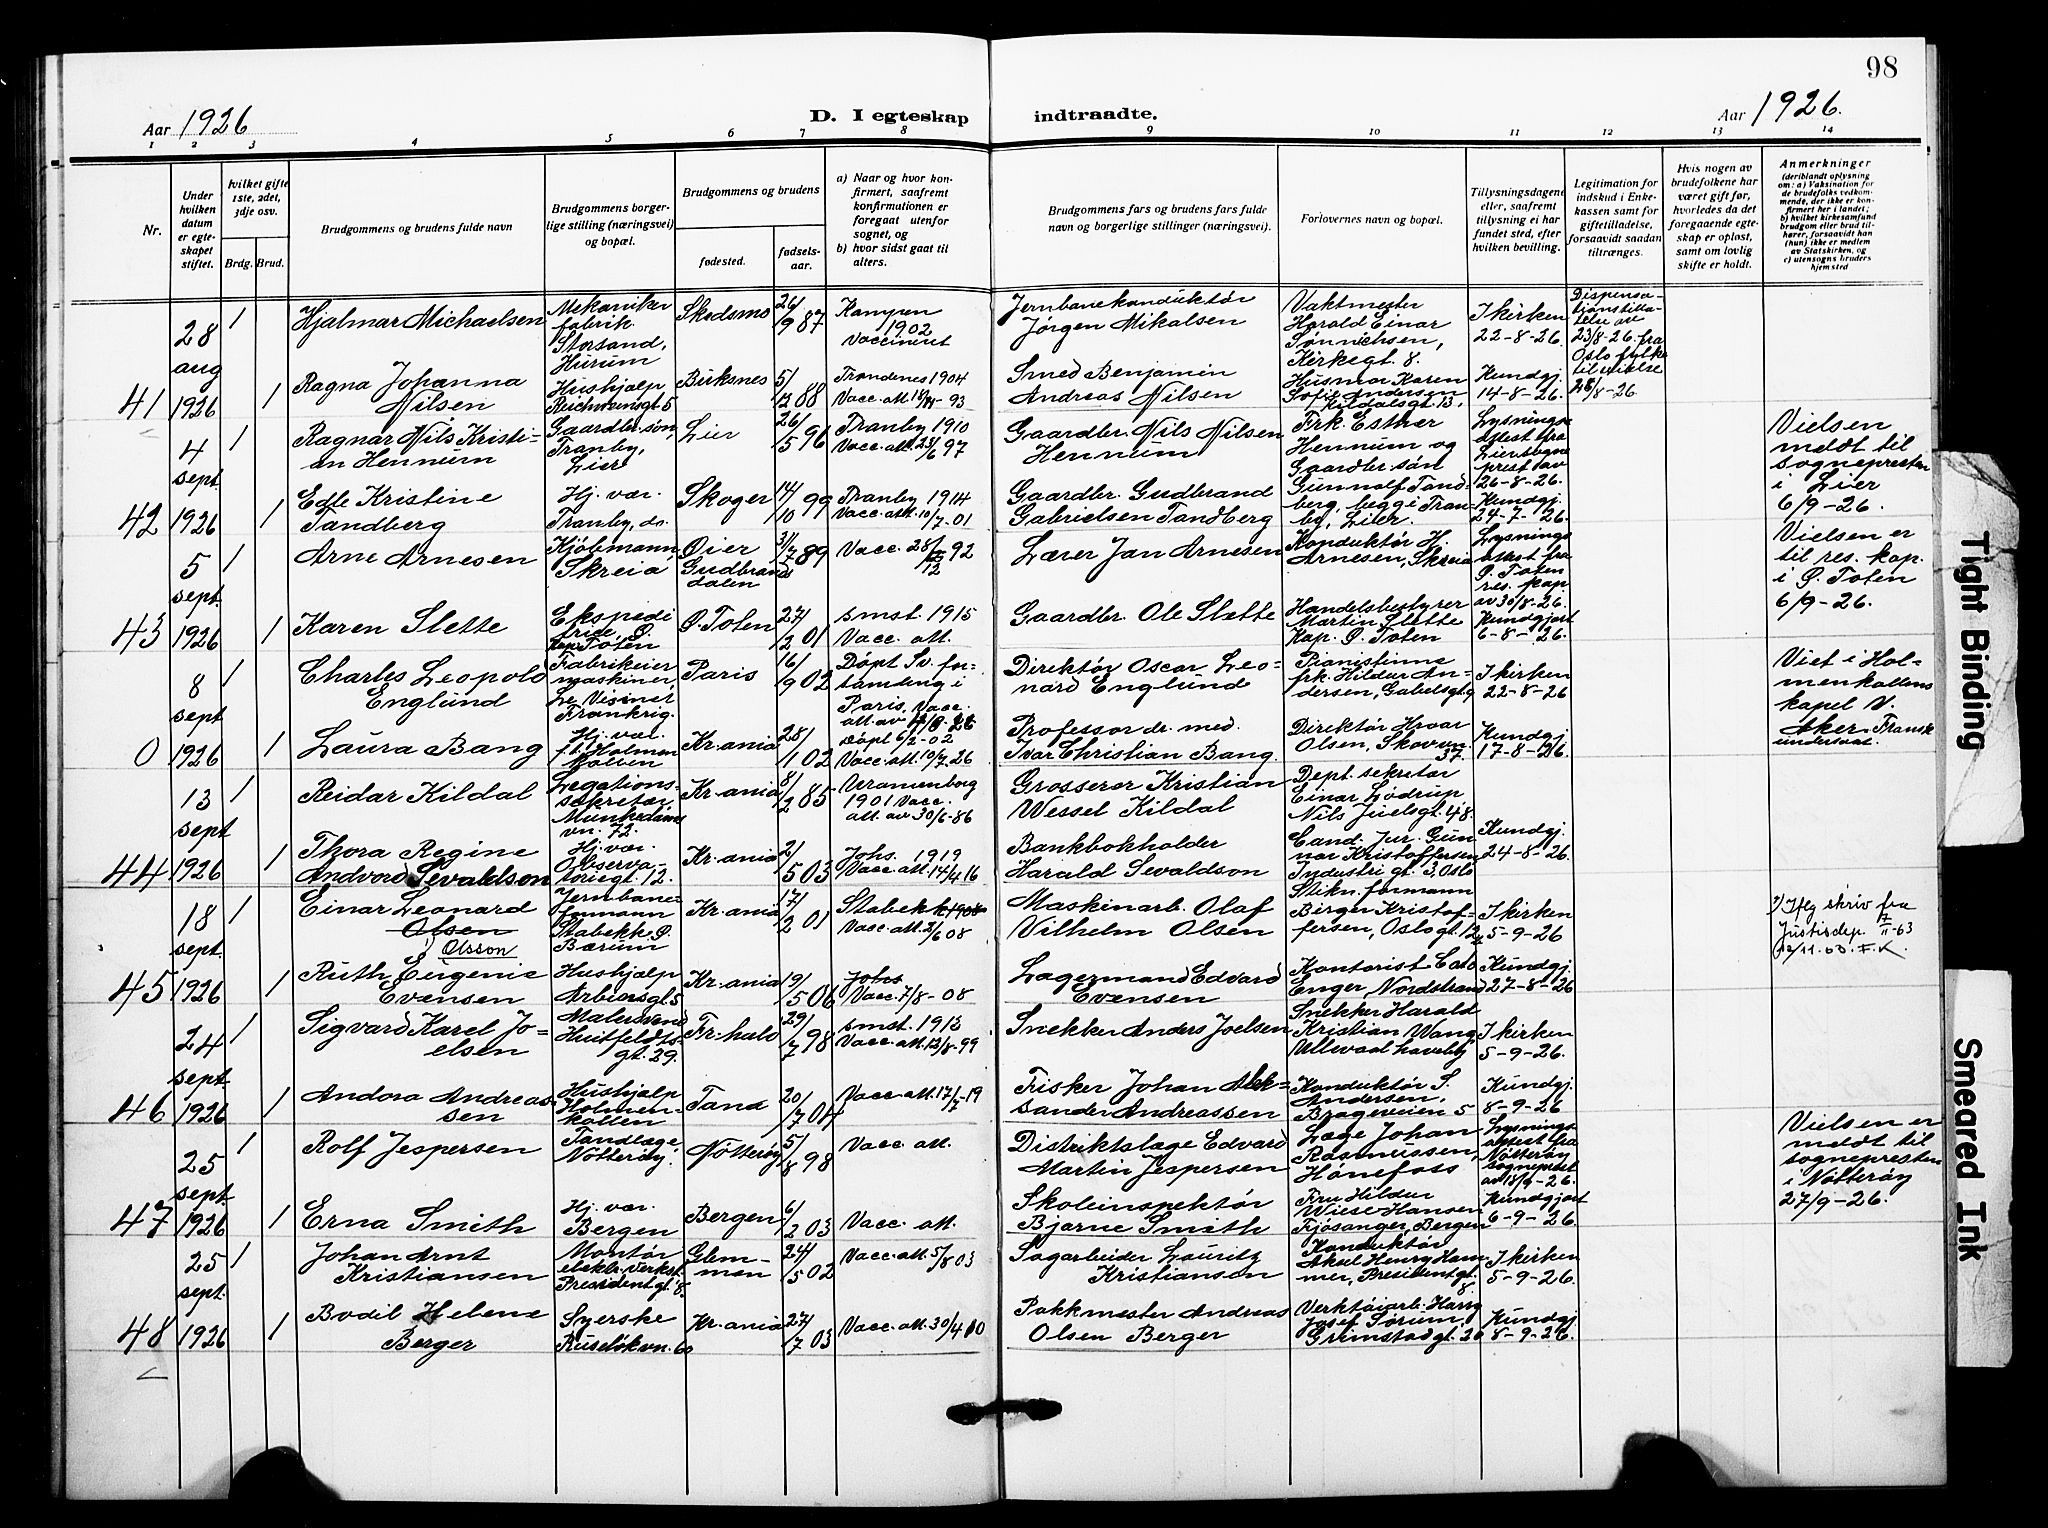 98
Aar 1926
D. I egteskap indtraadte.
Aar 1926.
1 2 3 4 5 6 7 8 9 10 11 12 13 14
Nr.
Under
hvilken
datum
er egte-
skapet
stiftet.
hvilket gifte
1ste, 2det,
3dje osv.
Brdg. Brud.
Brudgommens og brudens fulde navn
Brudgommens borger-
lige stilling (næringsvei)
og bopæl.
Brudgommens og brudens
fødested.
fødsels-
aar.
a) Naar og hvor kon-
firmert, saafremt
konfirmationen er
foregaat utenfor
sognet, og
b) hvor sidst gaat til
alters.
Brudgommens fars og brudens fars fulde
navn og borgerlige stillinger (næringsvei).
Forlovernes navn og bopæl.
Tillysningsdagene
eller, saafremt
tillysning ei har
fundet sted, efter
hvilken bevilling.
Legitimation for
indskud i Enke-
kassen samt for
giftetilladelse,
forsaavidt saadan
tiltrænges.
Hvis nogen av
brudefolkene har
været gift før,
hvorledes da det
foregaaende egte-
skap er opløst,
samt om lovlig
skifte er holdt.
Anmerkninger
(deriblandt oplysning
om: a) Vaksination for
de brudefolks vedkom-
mende, der ikke er kon-
firmert her i landet;
b) hvilket kirkesamfund
brudgom eller brud til-
hører, forsaavidt han
(hun) ikke er medlem
av Statskirken, og
c) utensogns bruders
hjemsted
41
28
aug
1926
1
Hjalmar Michaelsen
Mekaniker
fabrik
Storsand,
Hurum
Skedsmo
26/9 87
Kampen
1902
Vaccineret
Jernbanekonduktør
Jørgen Mikalsen
Vaktmester
Harald Einar
Sønnichsen,
Kirkegt. 8.
I kirken
22-8-26.
Dispensa-
tionstilla-
telse av
23/8-26. fra
Oslo fylke
til vielse
28/8-26.
1
Ragna Johanna
Nilsen
Hushjælp
Reichweinsgt 5
Buksnes
5/12 88
Trondenes 1904
Smed Benjamin
Andreas Nilsen
Husmor Karen
Sofie Andersen
Kildalsgt. 13,
Kundgj.
14-8-26.
42
4
sept.
1926
1
Ragnar Nils Kristi-
an Hennum
Gaardbr. søn,
Tranby,
Lier
Lier
26/5 96
Tranby 1910
Vacc. att. 23/6 97
Gaardbr. Nils Nilsen
Hennum
Frk. Esther
Hennum og
Gaardbr. søn
Gunnolf Tand-
berg, begge Tran-
by, Lier.
Lysnings-
attest fra
Lier sogne
prest av
26-8-26.
Vielsen
meldt til
sognepresten
i Lier
6/9-26.
1
Edle Kristine
Tandberg
Hj. vær.
Tranby, do.
Skoger
14/10 99
Tranby 1914
Vacc. att. 10/7-01
Gaardbr. Gudbrand
Gabrielsen Tandberg
Kundgj.
24-7-26.
43
5
sept.
1926
1
Arne Arnesen
Kjøbmann
Skreia
Øier
Gudbrands
dalen
31/7 89
Lærer Jan Arnesen
Konduktør H.
Arnesen, Skreia
Lysnings
attest fra
Ø. Toten
res. kap
av 30/8-26.
Vielsen er
til res. kap.
i Ø. Toten
6/9-26.
1
Karen Slette
Ekspedi
trice, Ø.
Toten
Ø. Toten
27/2 01
smst. 1915
Vacc. att.
Gaardbr. Ole Slette
Handelsbestyrer
Martin Slette
Kap. Ø. Toten
Kundgjort
6-8-26.
0
8
sept
1926
1
Charles Leopold
Englund
Fabrikeier
maskiner
Le Visinet
Frankrig.
Paris
16/9 02
Døpt Sv. for-
samling i
Paris. Vacc.
Direktør Oscar Leo-
nard Englund
Pianistinne
frk. Hildur An-
dersen, Gabelsgt. 9
I kirken
22-8-26
Viet i Hol-
menkollens
kapel V.
Aker. Fransk
undersaat.
1
Laura Bang
Hj. vær.
Kr.ania
28/1 02
Døpt 6/2-02
Vacc. att. 10/7 26
Professor dr. med.
Ivar Christian Bang.
Direktør Hroar
Olsen, Skovvn.
37.
Kundgj.
17-8-26.
44
13
sept
1926
1
Reidar Kildal
Legations-
sekretær,
Munkedams
vn. 72.
Kr.ania
8/2 85
Uranienborg
1901 Vacc.
att. av 30/6-86
Grosserer Kristian
Wessel Kildal
Dept. sekretær
Einar Lødrup
Nils Juelsgt. 48.
1
Thora Regine
Andvord Sevaldson
Hj. vær.
Observa-
toriegt. 12.
Kr.ania
2/5 03
Johs. 1919
Vacc. att. 14/4 16
Bankbokholder
Harald Sevaldson
Cand. jur. Gun-
nar Kristoffersen
Industrigt. 3, Oslo
Kundgj.
24-8-26.
45
18
sept.
1926
1
Einar Leonard
Olsen
Olsson
Jernbane-
formann
Stabekk
Bærum
Kr.ania
17/2 01
Stabekk 1908
Vacc. att. 2/6 08
Maskinarb. Olaf
Vilhelm Olsen
Stikn. formann
Birger Kristof-
fersen, Oslogt. 12
I kirken
5-9-26
Iflg skriv fra
Justisdep. 7/11-63
12/11.63. F.K.
1
Ruth Eugenie
Evensen
Hushjælp
Arbiensgt 5
Kr.ania
19/5 06
Johs.
Vacc. 7/8-08
Lagermand Edvard
Evensen
Kontorist Carl
Enger, Nordstrand
Kundgj.
27-8-26
46
24
sept.
1926
1
Sigvard Karel Jo-
elsen
Malersvend
Huitfeldts
gt. 29.
Fr. hald
29/7 98
smst. 1913
Vacc. att. 12/8-99
Snekker Anders Joelsen
Snekker Harald
Kristian Wang
Ullevaal haveby
I kirken
5-9-26.
1
Andora Andreas-
sen
Hushjælp
Holmen-
kollen
Tana
20/7 04
Vacc. att. 17/7-19
Fisker Johan Alek-
sander Andreassen
Konduktør S.
Andersen,
Brageveien 5
Kundgj.
8-9-26
47
25
sept.
1926
1
Rolf Jespersen
Tandlæge
Nøtterøy.
Nøtterøy
5/8 98
Vacc att.
Distriktslæge Edvard
Martin Jespersen
Læge Johan
Rasmussen,
Hønefoss
Lysnings
attest fra
Nøtterøy
sogneprest
av 18/9-26.
Vielsen er
meldt til
sognepresten
i Nøtterøy
27/9-26.
1
Erna Smith
Hj. vær.
Bergen
Bergen
6/2 03
Vacc. att.
Skoleinspektør
Bjarne Smith
Fru Hildur
Wiese Hansen
Fjøsanger, Bergen
Kundgjort
6-9-26.
48
25
sept.
1926
1
Johan Arnt
Kristiansen
Montør
elektr. verkst
Presidentgt. 8.
Glem-
men
24/5 02
Vacc. att. 5/8 03
Sagarbeider Lauritz
Kristiansen
Konduktør
Aksel Henry Ham
mer, Presidentgt.
8.
I kirken
5-9-26.
1
Bodil Helene
Berger
Syerske
Ruseløkvn. 60
Kr.ania
27/7 03
Vacc. att. 30/4 10
Pakkmester Andreas
Olsen Berger
Verktøiarb. Harry
Josef Sørum,
Grimstadgt. 20
Kundgj.
8-9-26.
Tight Binding
Smeared Ink